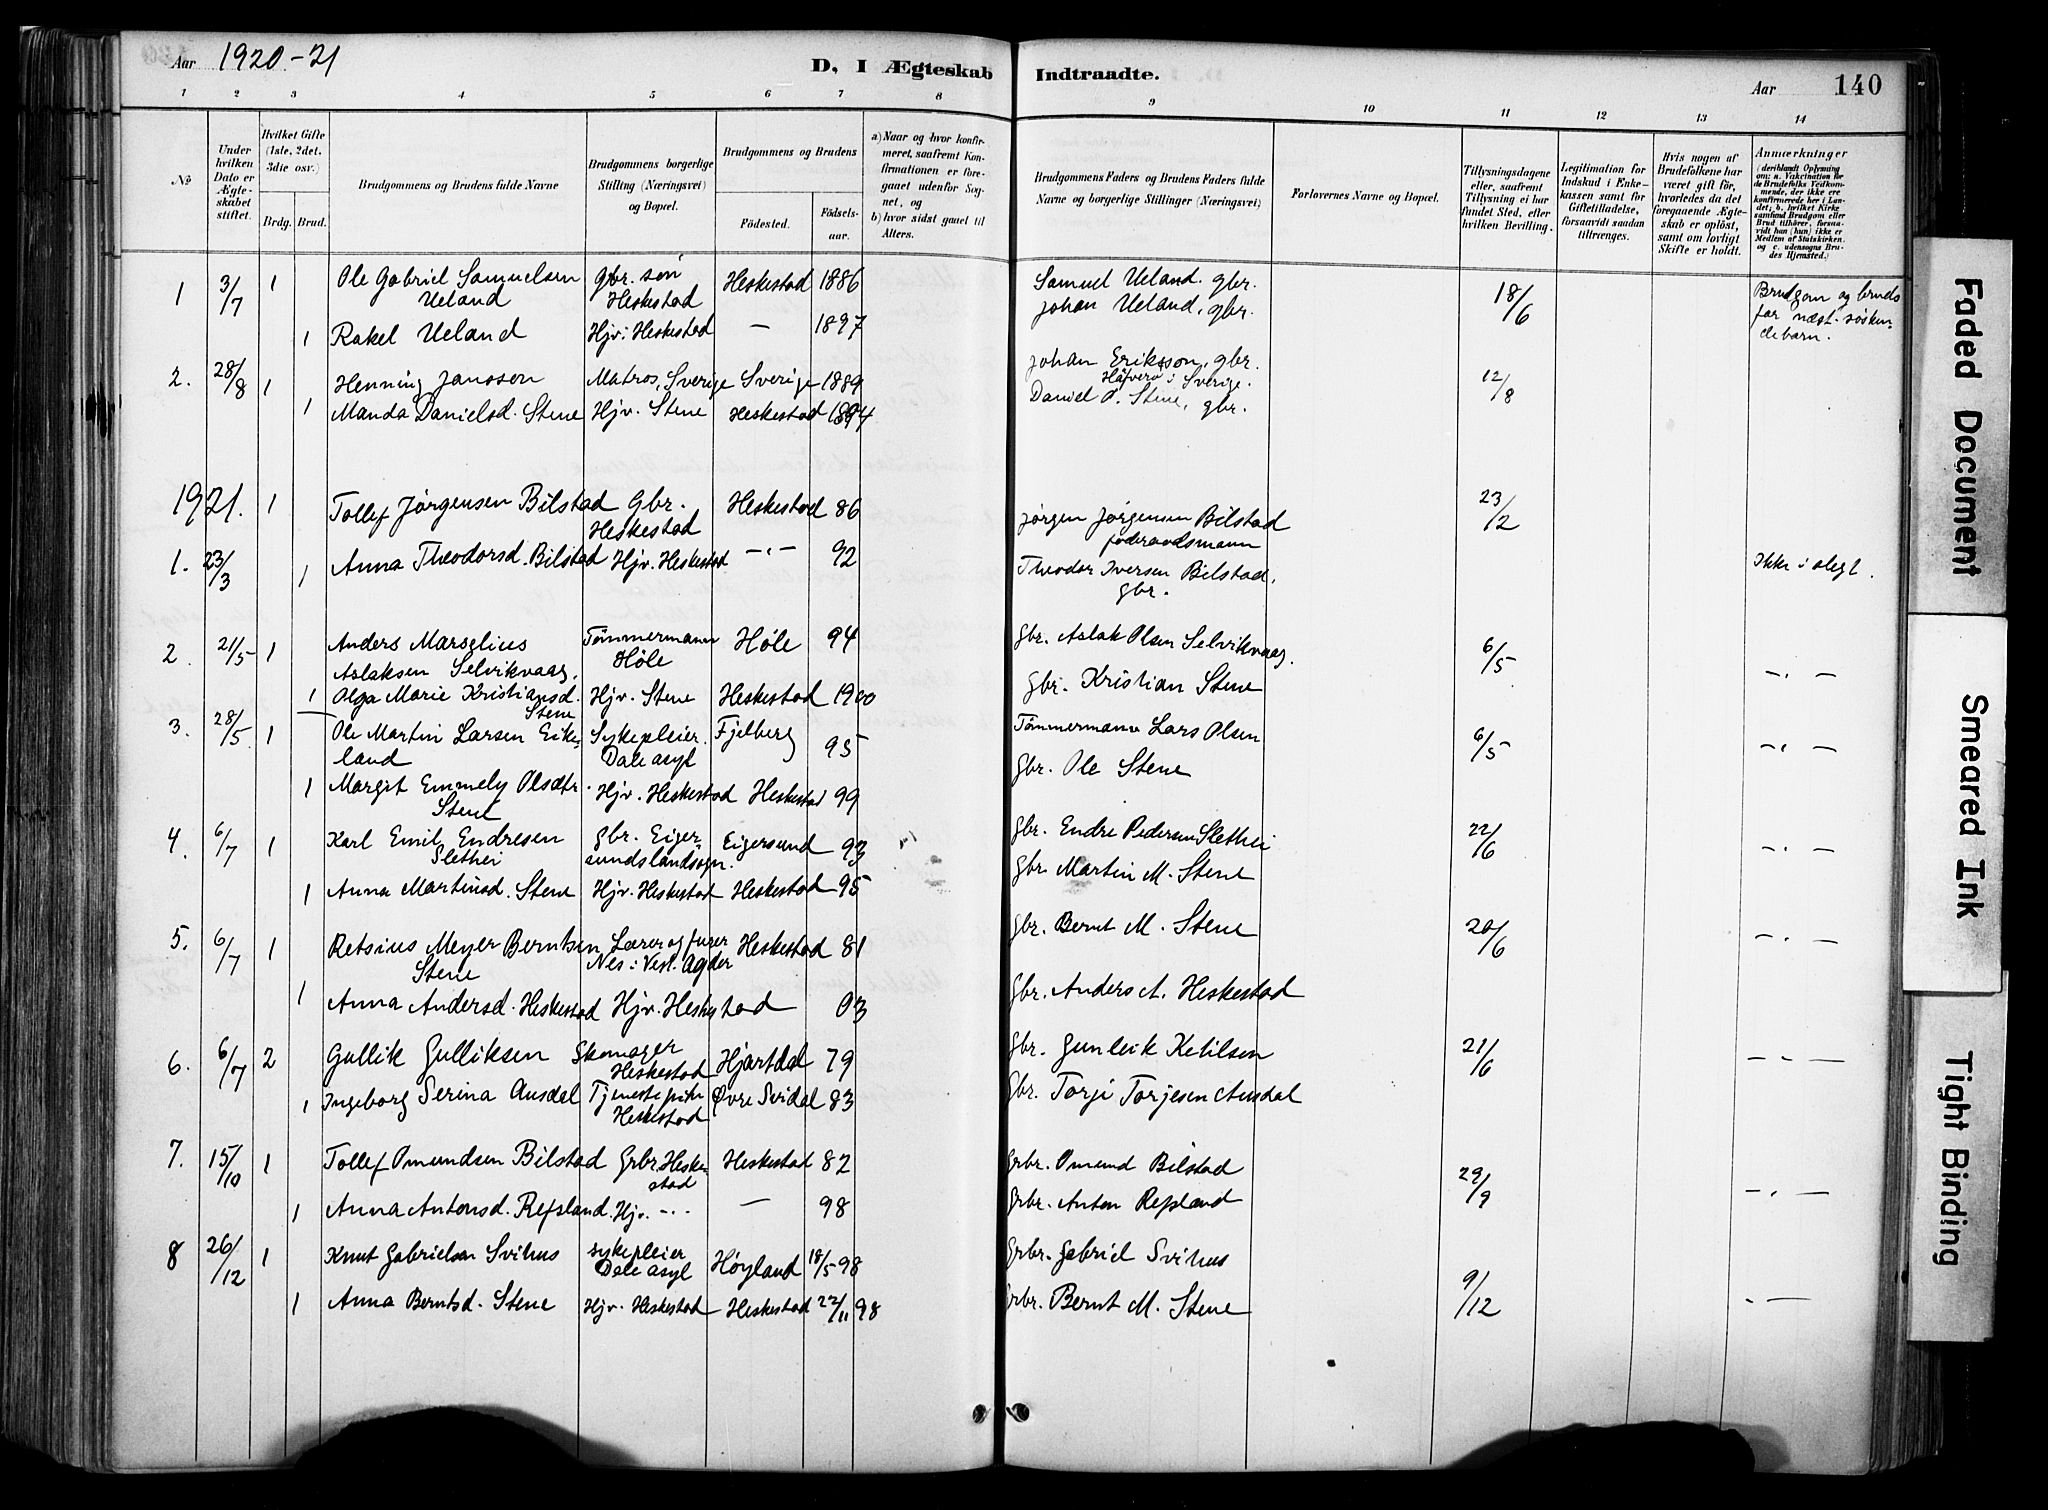 Aar 1920.-21
D, I Ægteskab Indtraadte.
Aar 140
1 2 3 4 5 6 7 8 9 10 11 12 13 14
No
Under hvilken Dato er Ægteskabet stiftet.
Hvilket Gifte (1ste, 2det, 3die osv.)
Brdg. Brud.
Brudgommens og Brudens fulde Navne
Brudgommens borgerlige Stilling (Næringsvei) og Bopæl.
Brudgommens og Brudens
Fødested.
Fødselsaar.
a) Naar og hvor konfirmeret, saafremt Konfirmationen er foregaaet udenfor Sognet, og
b) hvor sidst gaaet til Alters.
Brudgommens Faders og Brudens Faders fulde Navne og borgerlige Stillinger (Næringsvei)
Forlovernes Navne og Bopæl.
Tillysningsdagene eller, saafremt Tillysning ei har fundet Sted, efter hvilken Bevilling.
Legitimation for Indskud i Enkekassen samt for Giftetilladelse, forsaavidt saadan tiltrænges.
Hvis nogen af Brudefolkene har været gift før, hvorledes da det foregaaende Ægteskab er opløst, samt om lovligt Skifte er holdt.
Anmærkninger (deriblandt Oplysning om: a. Vakcination for de Brudefolks Vedkommende, der ikke ere konfirmerede her i Landet; b. hvilket Kirkesamfund Brudgom eller Brud tilhører, forsaavidt han (hun) ikke er Medlem af Statskirken, og c. udensogns Brudes Hjemsted.)
1 3/7 1 Ole Gabriel Samuelsen Ueland Gbr. søn Heskestad Heskestad 1886 Samuel Ueland. gbr. 18/6 Brudgom og bruds far næst-søskendebarn.
1 Rakel Ueland Hjv: Heskestad — 1897 Johan Ueland, gbr.
2. 28/8 1 Henning Janssen Matros, Sverige Sverige 1889 Johan Eriksson, gbr. Häfverö i Sverige. 12/8
1 Manda Danielsd. Stene Hjv. Stene Heskestad 1894 Daniel O. Stene, gbr.
1921. 1 Tollef Jørgensen Bilstad Gbr. Heskestad Heskestad 86 Jørgen Jørgensen Bilstad føderaadsmann 23/2
1. 23/3 1 Anna Theodorsd. Bilstad Hjv. Heskestad -"- 92 Theodor Iversen Bilstad. gbr. Ikke i slegt.
2. 21/5 1 Anders Marselius Aslaksen Selvikvaag, Tømmermann Høle Høle 94 gbr. Aslak Olsen Selvikvaag. 6/5 -"-
1 Olga Marie Kristiansd. Stene Hjv. Stene Heskestad 1900 gbr. Kristian Stene
3. 28/5 1 Ole Martin Larsen Eikeland Sykepleier. Dale asyl Fjelberg 95 Tømmermann Lars Olsen 6/5 -"-
1 Margit Emmely Olsdtr. Stene Hjv. Heskestad Heskestad 99 gbr. Ole Stene
4. 6/7 1 Karl Emil Endresen Slethei gbr. Eigersundslandsogn. Eigersund 93 gbr. Endre Pedersen Slethei 22/6 -"-
1 Anna Martinsd. Stene Hjv. Heskestad Heskestad 95 gbr. Martin M. Stene
5. 6/7 1 Retsius Meyer Berntsen Stene Lærer og furer Nes i Vest. Agder Heskestad 81 gbr. Bernt M. Stene 20/6 -"-
1 Anna Andersd. Heskestad Hjv. Heskestad 03 gbr. Anders A. Heskestad
6. 6/7 2 Gullik Gulliksen Skomager Heskestad Hjartdal 79 gbr. Gunleik Ketilsen 21/6 -"-
1 Ingeborg Serina Ausdal Tjenestepike Heskestad Øvre Sirdal 83 gbr. Torji Torjesen Ausdal
7. 15/10 1 Tollef Omundsen Bilstad Grbr. Heskestad Heskestad 82 Grbr. Omund Bilstad 29/9 -"-
1 Anna Antonsd. Refsland. Hjv. -"- — 98 Grbr. Anton Refsland
8 26/12 1 Knut Gabrielsen Svihus sykepleier Dale asyl Høyland 18/5 98 Grbr. Gabriel Svihus 9/12 -"-
1 Anna Berntsd. Stene Hjv. Heskestad Heskestad 22/11 98 Grbr. Bernt M. Stene
Faded Document
Smeared Ink
Tight Binding